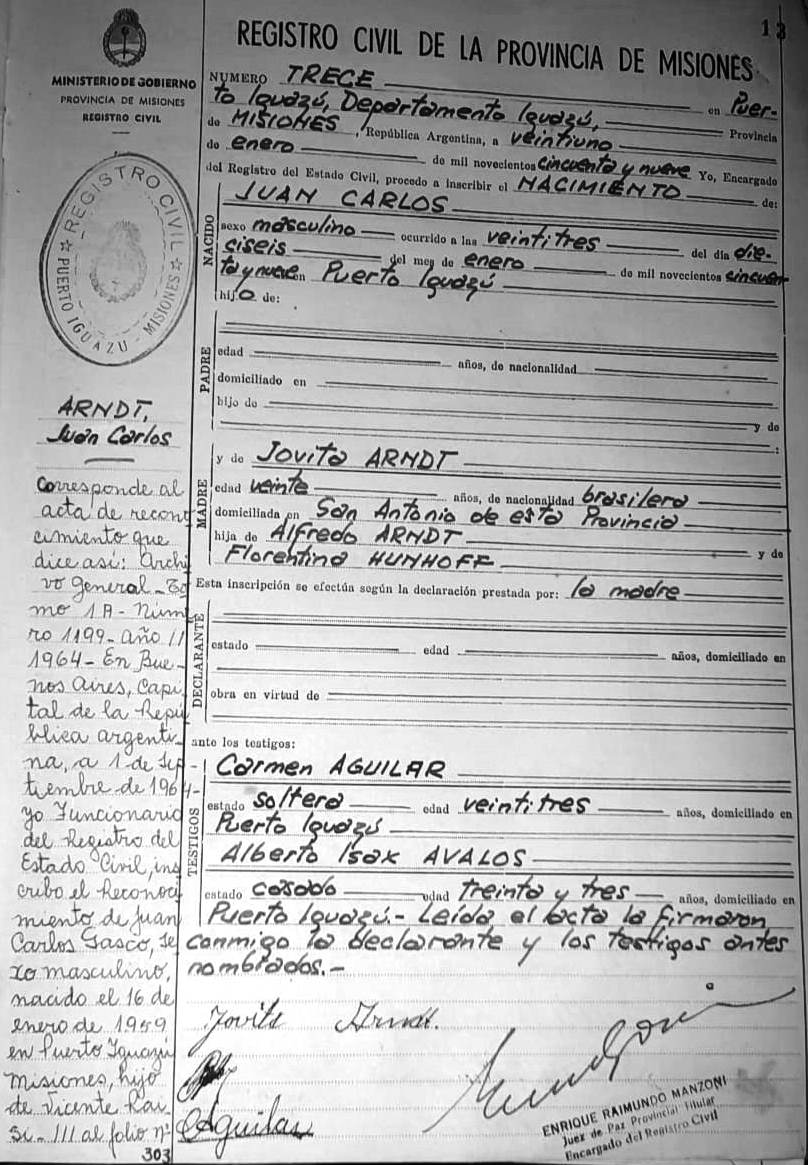 13
REGISTRO CIVIL DE LA PROVINCIA DE MISIONES
MINISTERIO DE GOBIERNO
PROVINCIA DE MISIONES
REGISTRO CIVIL
REGISTRO CIVIL
PUERTO IGUAZU - MISIONES
NUMERO TRECE en Puer-
to Iguazú, Departamento Iguazú, Provincia
de MISIONES, República Argentina, a veintiuno
de enero de mil novecientos cincuenta y nueve Yo, Encargado
del Registro del Estado Civil, procedo a inscribir el NACIMIENTO de:
NACIDO
JUAN CARLOS
sexo masculino ocurrido a las veintitres del día die-
ciseis del mes de enero de mil novecientos cincuen
ta y nueve en Puerto Iguazú
hijo de:
PADRE
edad años, de nacionalidad
domiciliado en
hijo de
y de
:
MADRE
y de Jovita ARNDT
edad veinte años, de nacionalidad brasilera
domiciliada en San Antonio de esta Provincia
hija de Alfredo ARNDT y de
Florentina HUNHOFF
Esta inscripción se efectúa según la declaración prestada por: la madre
DECLARANTE
estado edad años, domiciliado en
obra en virtud de
ante los testigos:
TESTIGOS
Carmen AGUILAR
estado soltera edad veintitres años, domiciliado en
Puerto Iguazú
Alberto Isax AVALOS
estado casado edad treinta y tres años, domiciliado en
Puerto Iguazú.- Leída el acta la firmaron
conmigo la declarante y los testigos antes
nombrados.-
Jovita Arndt.
Aguilar
ENRIQUE RAIMUNDO MANZONI
Juez de Paz Provincial Titular
Encargado del Registro Civil
ARNDT,
Juan Carlos
Corresponde al
acta de recono
cimiento que
dice así: Archi
vo General - To
mo 1A - Núme
ro 1199 - año //
1964 - En Bue-
nos Aires, Capi
tal de la Repú
blica argenti-
na, a 1 de Sep-
tiembre de 1964-
yo Funcionario
del Registro del
Estado Civil, ins
cribo el Reconoci
miento de Juan
Carlos Gasco, se
xo masculino,
nacido el 16 de
enero de 1959
en Puerto Iguazú
Misiones, hijo
de Vicente Rai
si - III al folio nº
303